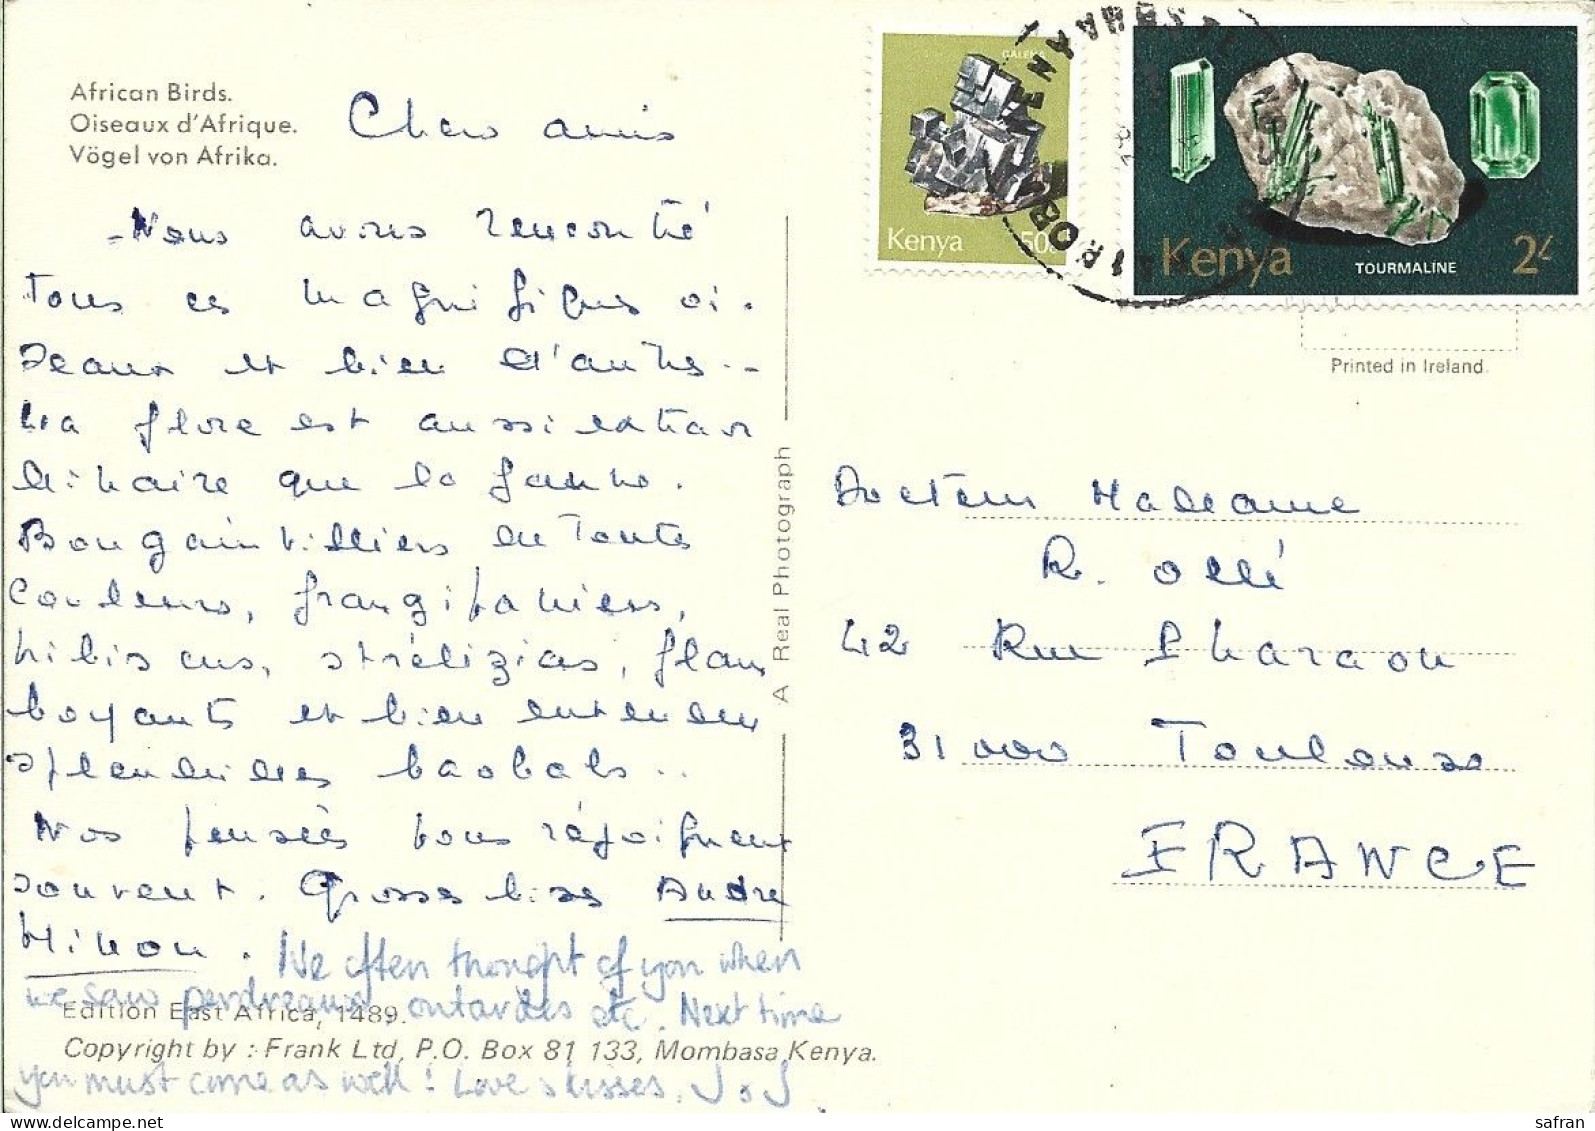 African Birds.
Oiseaux d'Afrique.
Vögel von Afrika.
Chers amis
Nous avons rencontré
tous ces magnifiques oi-
seaux et bien d'autres..
La flore est aussi extraor
dinaire que la faune.
Bougainvilliers en toutes
couleurs, frangipaniers,
hibiscus, strélizias, flam
boyants et bien entendu
splendides baobabs..
Nos pensées vous rejoignent
souvent. Grosses bises Andre
Minou.
We often thought of you when
we saw perdreaux, outardes etc. Next time
you must come as well! Love & kisses. J & J
Edition East Africa, 1489.
Copyright by : Frank Ltd, P.O. Box 81 133, Mombasa Kenya.
A Real Photograph
GALENA
Kenya 50c
Kenya TOURMALINE 2/-
NAIROBI KENYA
Printed in Ireland.
Docteur Madame
R. Ollé
42 Rue Pharaon
31000 Toulouse
FRANCE
safran